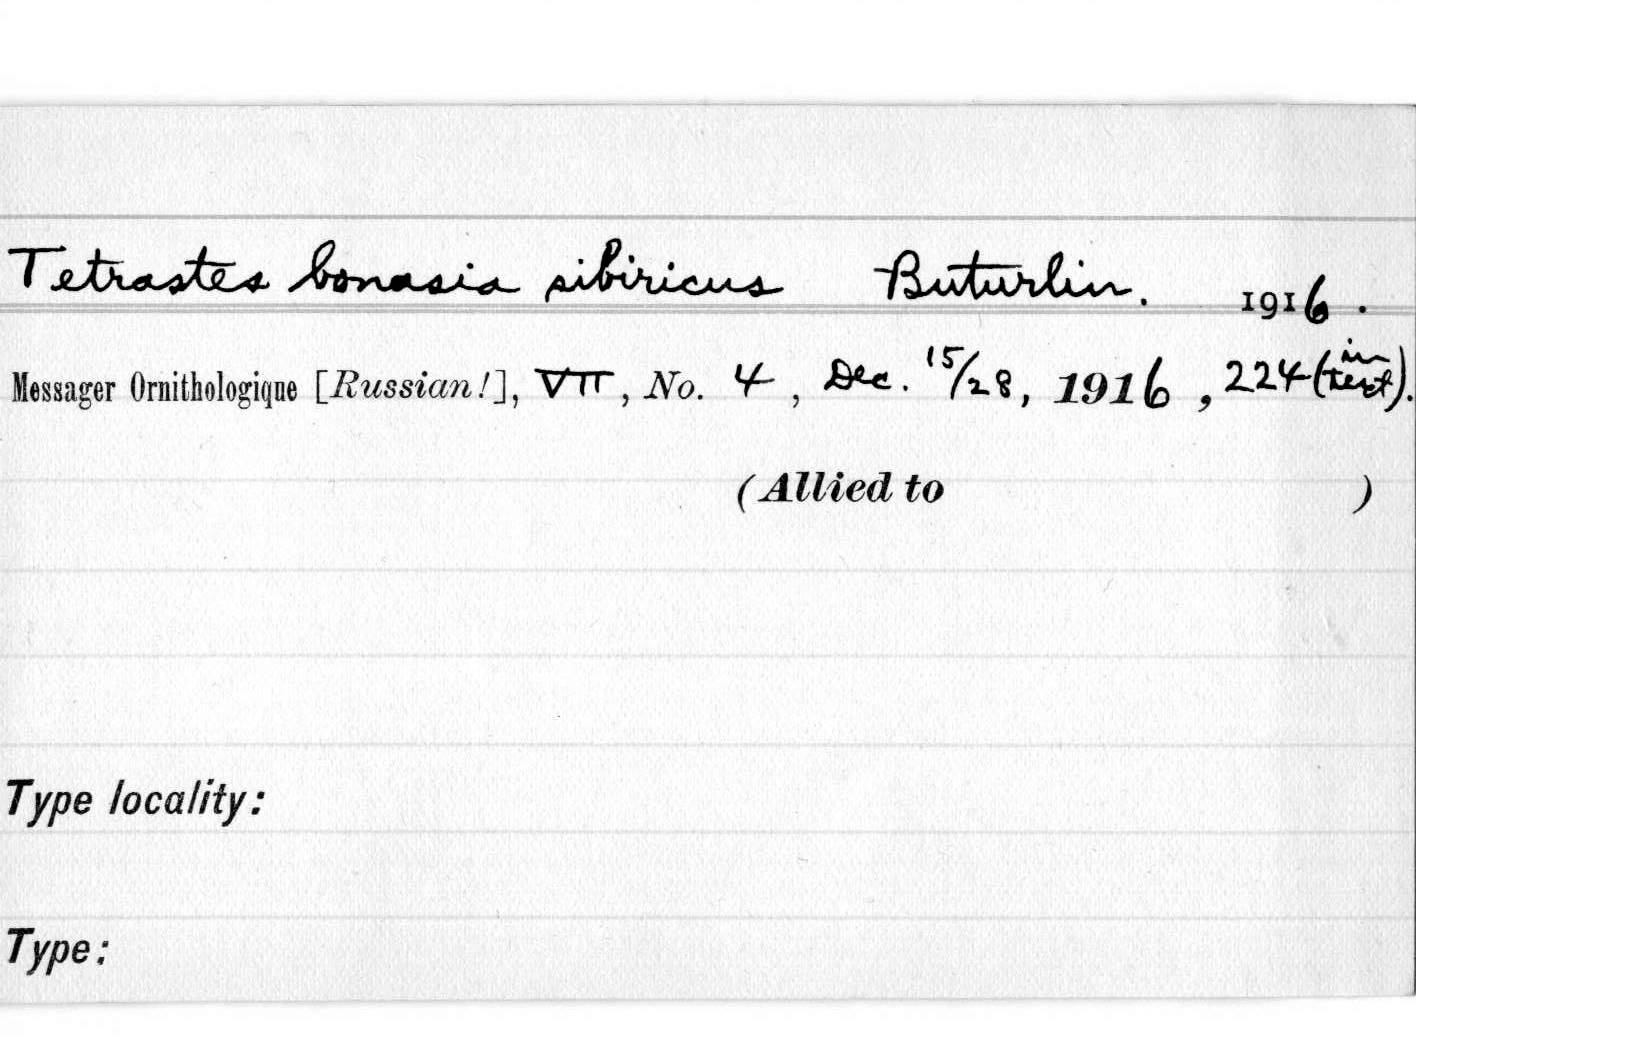 Tetrastes bonasia sibiricus Buturlin. 1916.
Messager Ornithologique [Russian!], VII, No. 4, Dec. 15/28, 1916, 224 (in text).
(Allied to )
Type locality:
Type: